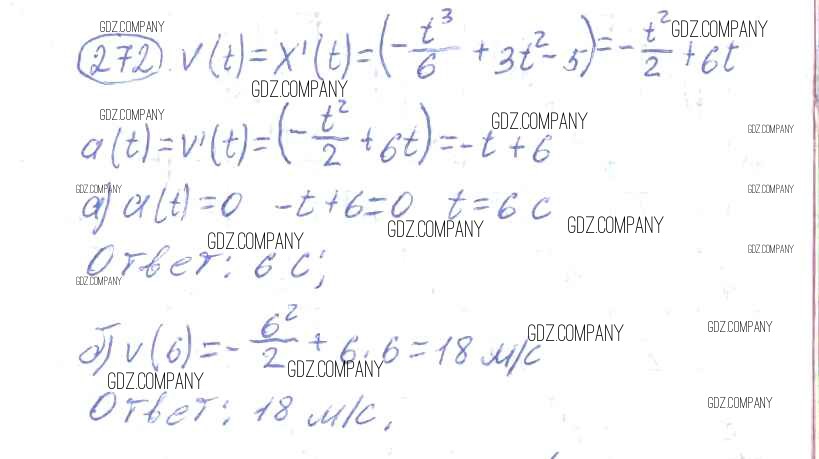 GDZ.COMPANY
272 v(t) = x'(t) = (-t³/6 + 3t² - 5) = -t²/2 + 6t GDZ.COMPANY
GDZ.COMPANY
GDZ.COMPANY GDZ.COMPANY
a(t) = v'(t) = (-t²/2 + 6t) = -t + 6 GDZ.COMPANY
GDZ.COMPANY GDZ.COMPANY
а) a(t) = 0 -t + 6 = 0 t = 6 с
GDZ.COMPANY GDZ.COMPANY GDZ.COMPANY
Ответ: 6 с; GDZ.COMPANY
GDZ.COMPANY
б) v(6) = -6²/2 + 6·6 = 18 м/с GDZ.COMPANY GDZ.COMPANY
GDZ.COMPANY GDZ.COMPANY
Ответ: 18 м/с. GDZ.COMPANY